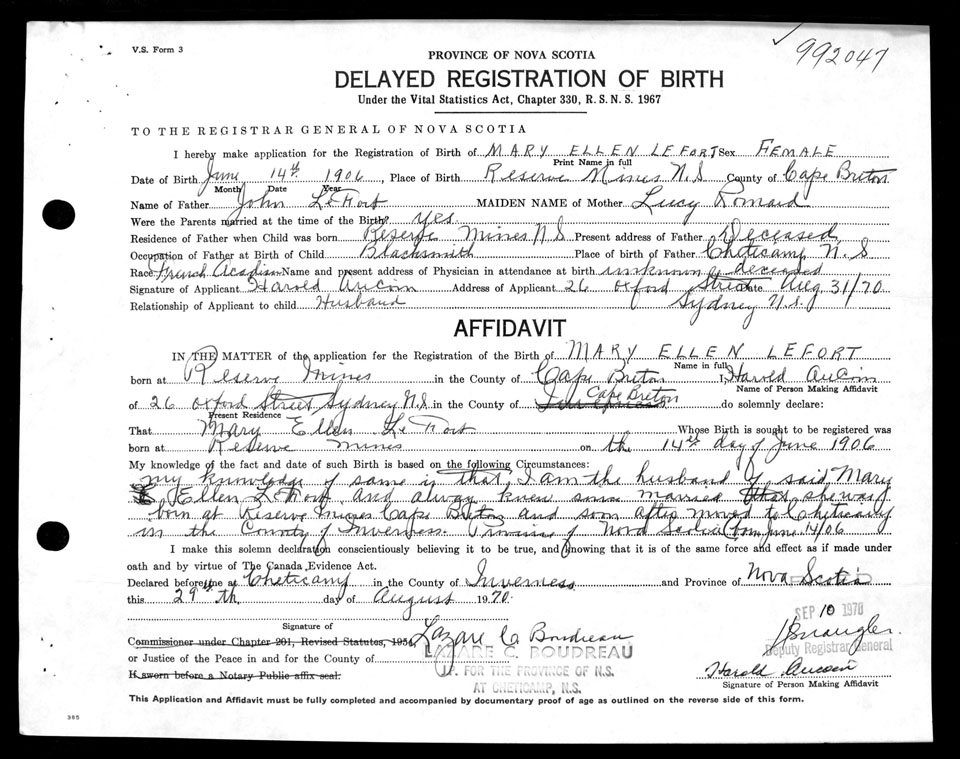 V.S. Form 3
992047
PROVINCE OF NOVA SCOTIA
DELAYED REGISTRATION OF BIRTH
Under the Vital Statistics Act, Chapter 330, R.S.N.S. 1967
TO THE REGISTRAR GENERAL OF NOVA SCOTIA
I hereby make application for the Registration of Birth of MARY ELLEN LEFORT Sex FEMALE
Print Name in full
Date of Birth June 14th 1906, Place of Birth Reserve Mines N.S County of Cape Breton
Month Date Year
Name of Father John LeFort MAIDEN NAME of Mother Lucy Romard
Were the Parents married at the time of the Birth? yes
Residence of Father when Child was born Reserve Mines N.S Present address of Father Deceased
Occupation of Father at Birth of Child Blacksmith Place of birth of Father Cheticamp N.S
Race French Acadian Name and present address of Physician in attendance at birth unknown deceased
Signature of Applicant Harold Aucoin Address of Applicant 26 Oxford Street Date Aug 31/70
Relationship of Applicant to child Husband Sydney N.S.
AFFIDAVIT
IN THE MATTER of the application for the Registration of the Birth of MARY ELLEN LEFORT
Name in full
born at Reserve Mines in the County of Cape Breton I, Harold AuCoin
Name of Person Making Affidavit
of 26 Oxford Street Sydney N.S in the County of Cape Breton do solemnly declare:
Present Residence
That Mary Ellen LeFort Whose Birth is sought to be registered was
born at Reserve Mines on the 14th day of June 1906
My knowledge of the fact and date of such Birth is based on the following Circumstances:
my knowledge of same is that, I am the husband of said Mary
Ellen LeFort and always knew since married that she was
born at Reserve Mines Cape Breton and soon after moved to Cheticamp
in the County of Inverness. Province of Nova Scotia (born June 14/06
I make this solemn declaration conscientiously believing it to be true, and knowing that it is of the same force and effect as if made under
oath and by virtue of The Canada Evidence Act.
Declared before me at Cheticamp in the County of Inverness and Province of Nova Scotia
this 29th day of August 1970.
SEP 10 1970
Signature of
Commissioner under Chapter 201, Revised Statutes, 1954, Lazare C Boudreau
LAZARE C. BOUDREAU
Deputy Registrar General
or Justice of the Peace in and for the County of
J.P. FOR THE PROVINCE OF N.S.
Harold Aucoin
If sworn before a Notary Public affix seal.
AT CHETICAMP, N.S.
Signature of Person Making Affidavit
This Application and Affidavit must be fully completed and accompanied by documentary proof of age as outlined on the reverse side of this form.
385